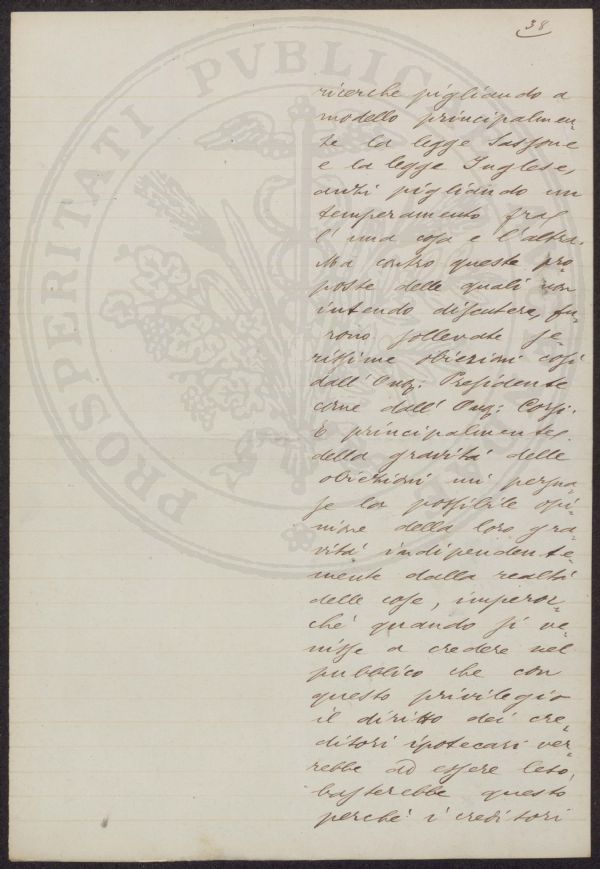 38
ricerche pigliando a
modello principalmen-
te la legge Sassone
e la legge Inglese,
anzi pigliando un
temperamento fra
l'una cosa e l'altra.
Ma contro queste pro-
poste delle quali non
intendo discutere, fu-
rono sollevate se-
rissime obiezioni così
dall'Onq: Presidente
come dall'Onq: Corsi.
E principalmente
della gravità delle
obiezioni mi persua-
se la possibile opi-
nione della loro gra-
vità indipendente-
mente dalla realtà
delle cose, imperoc-
chè quando si ve-
nisse a credere nel
pubblico che con
questo privilegio
il diritto dei cre-
ditori ipotecari ver-
rebbe ad essere leso,
basterebbe questo
perché i creditori
PROSPERITATI PVBLICAE